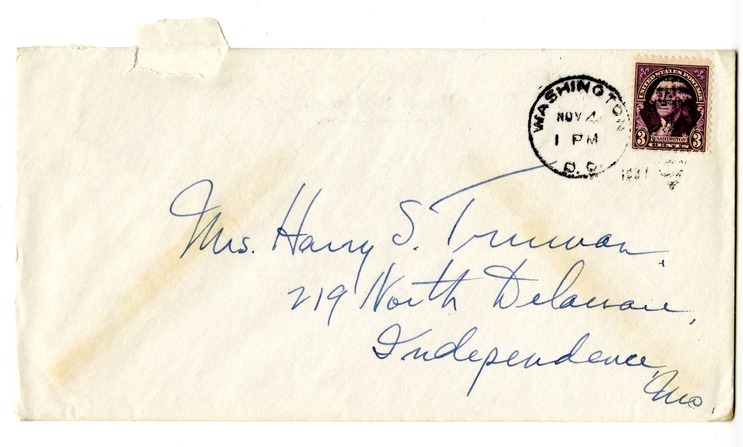 WASHINGTON
NOV 4
1 PM
D.C.
UNITED STATES POSTAGE
3 WASHINGTON 3
CENTS
Mrs. Harry S. Truman,
219 North Delaware,
Independence,
Mo.